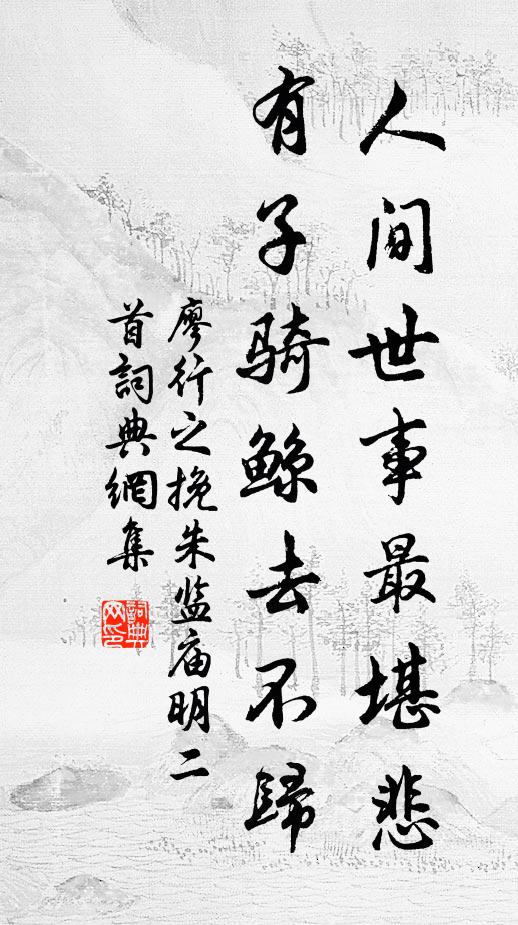 人间世事最堪悲
有子骑鲸去不归
廖行之挽朱监庙明二
首词典網集
詞典
网印